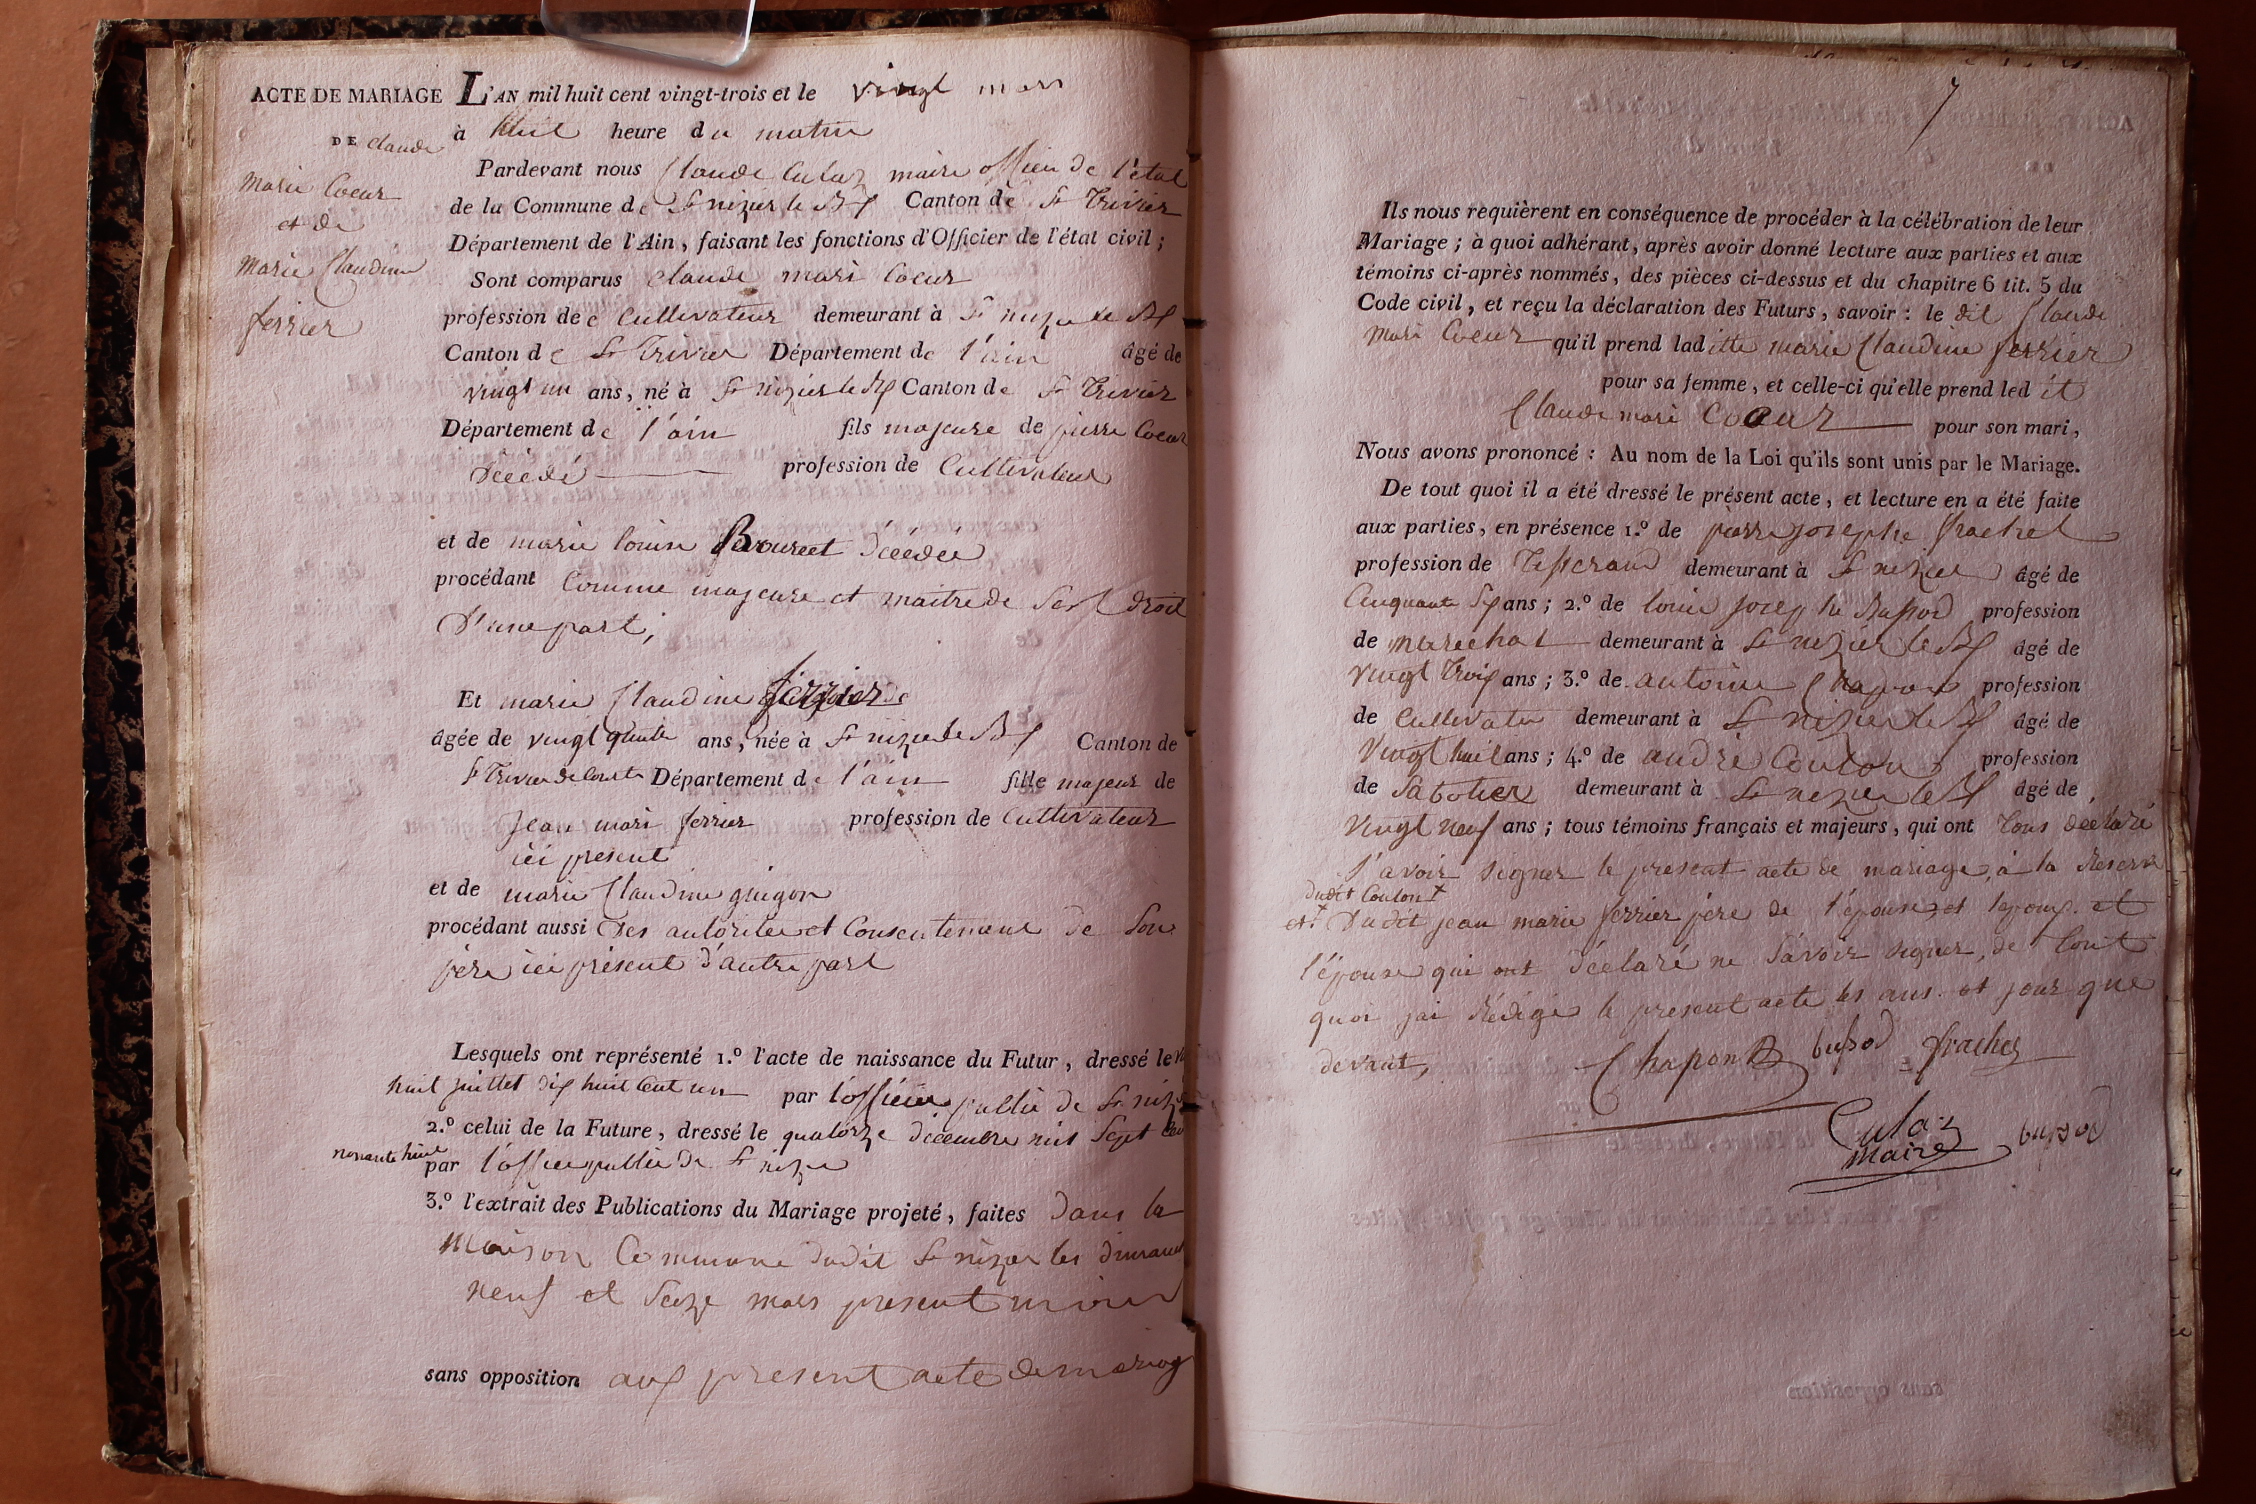 ACTE DE MARIAGE
DE claude
marie Coeur
et de
marie Claudine
ferrier
L'AN mil huit cent vingt-trois et le vingt mars
à huit heure du matin
Pardevant nous Claude Culaz maire officier de l'état
de la Commune de St nizier le Bx Canton de St Trivier
Département de l'Ain, faisant les fonctions d'Officier de l'état civil ;
Sont comparus claude mari Coeur
profession de Cultivateur demeurant à St nizier le Bx
Canton de St Trivier Département de l'ain âgé de
vingt un ans, né à St nizier le Bx Canton de St Trivier
Département de l'ain fils majeure de pierre Coeur
décédé profession de Cultivateur
et de marie louise décédée
procédant Comme majeure et maitre de ses droit
D'une part,
Et marie Claudine ferrier
âgée de vingt quatre ans, née à St nizier le Bx Canton de
St Trivier de Courte Département de l'ain fille majeur de
Jean mari ferrier profession de Cultivateur
ici présent
et de marie Claudine guigon
procédant aussi Des autoritée et Consentement de Son
père ici présent d'autre part
Lesquels ont représenté 1.º l'acte de naissance du Futur, dressé le
huit juillet dix huit Cent un par l'officier public de St nizi
2.º celui de la Future, dressé le quatorze décembre mil Sept Cen
nonante huit
par l'officier public de St nizier
3.º l'extrait des Publications du Mariage projeté, faites dans la
Maison Commune dudit St nizier les dimanch
neuf et Seize mars present mois
sans opposition aux present acte de mariag
7
Ils nous requièrent en conséquence de procéder à la célébration de leur
Mariage ; à quoi adhérant, après avoir donné lecture aux parties et aux
témoins ci-après nommés, des pièces ci-dessus et du chapitre 6 tit. 5 du
Code civil, et reçu la déclaration des Futurs, savoir : le dit Claude
mari Coeur qu'il prend laditte marie Claudine ferrier
pour sa femme, et celle-ci qu'elle prend ledit
Claude mari Coeur pour son mari,
Nous avons prononcé : Au nom de la Loi qu'ils sont unis par le Mariage.
De tout quoi il a été dressé le présent acte, et lecture en a été faite
aux parties, en présence 1.º de pierre josephe frachet
profession de Tisserand demeurant à St nizier âgé de
Cinquante Six ans ; 2.º de louis josephe Bussod profession
de marechal demeurant à St nizier le Bx âgé de
vingt trois ans ; 3.º de antoine Chapon profession
de Cultivateur demeurant à St nizier le Bx âgé de
vingt huit ans ; 4.º de andré Coulon profession
de Sabotier demeurant à St nizier le Bx âgé de
vingt neuf ans ; tous témoins français et majeurs, qui ont tous déclaré
s'avoir signer le present acte de mariage, à la Reserve
dudit Coulon +
et + Dudit jean marie ferrier père de l'épouse et lepoux et
l'épouse qui ont déclaré ne Savoir signer, de tout
quoi jai rédigé le present acte les ans et jour que
devant,
Chapon bussod frachet
Culaz
Maire
bussod